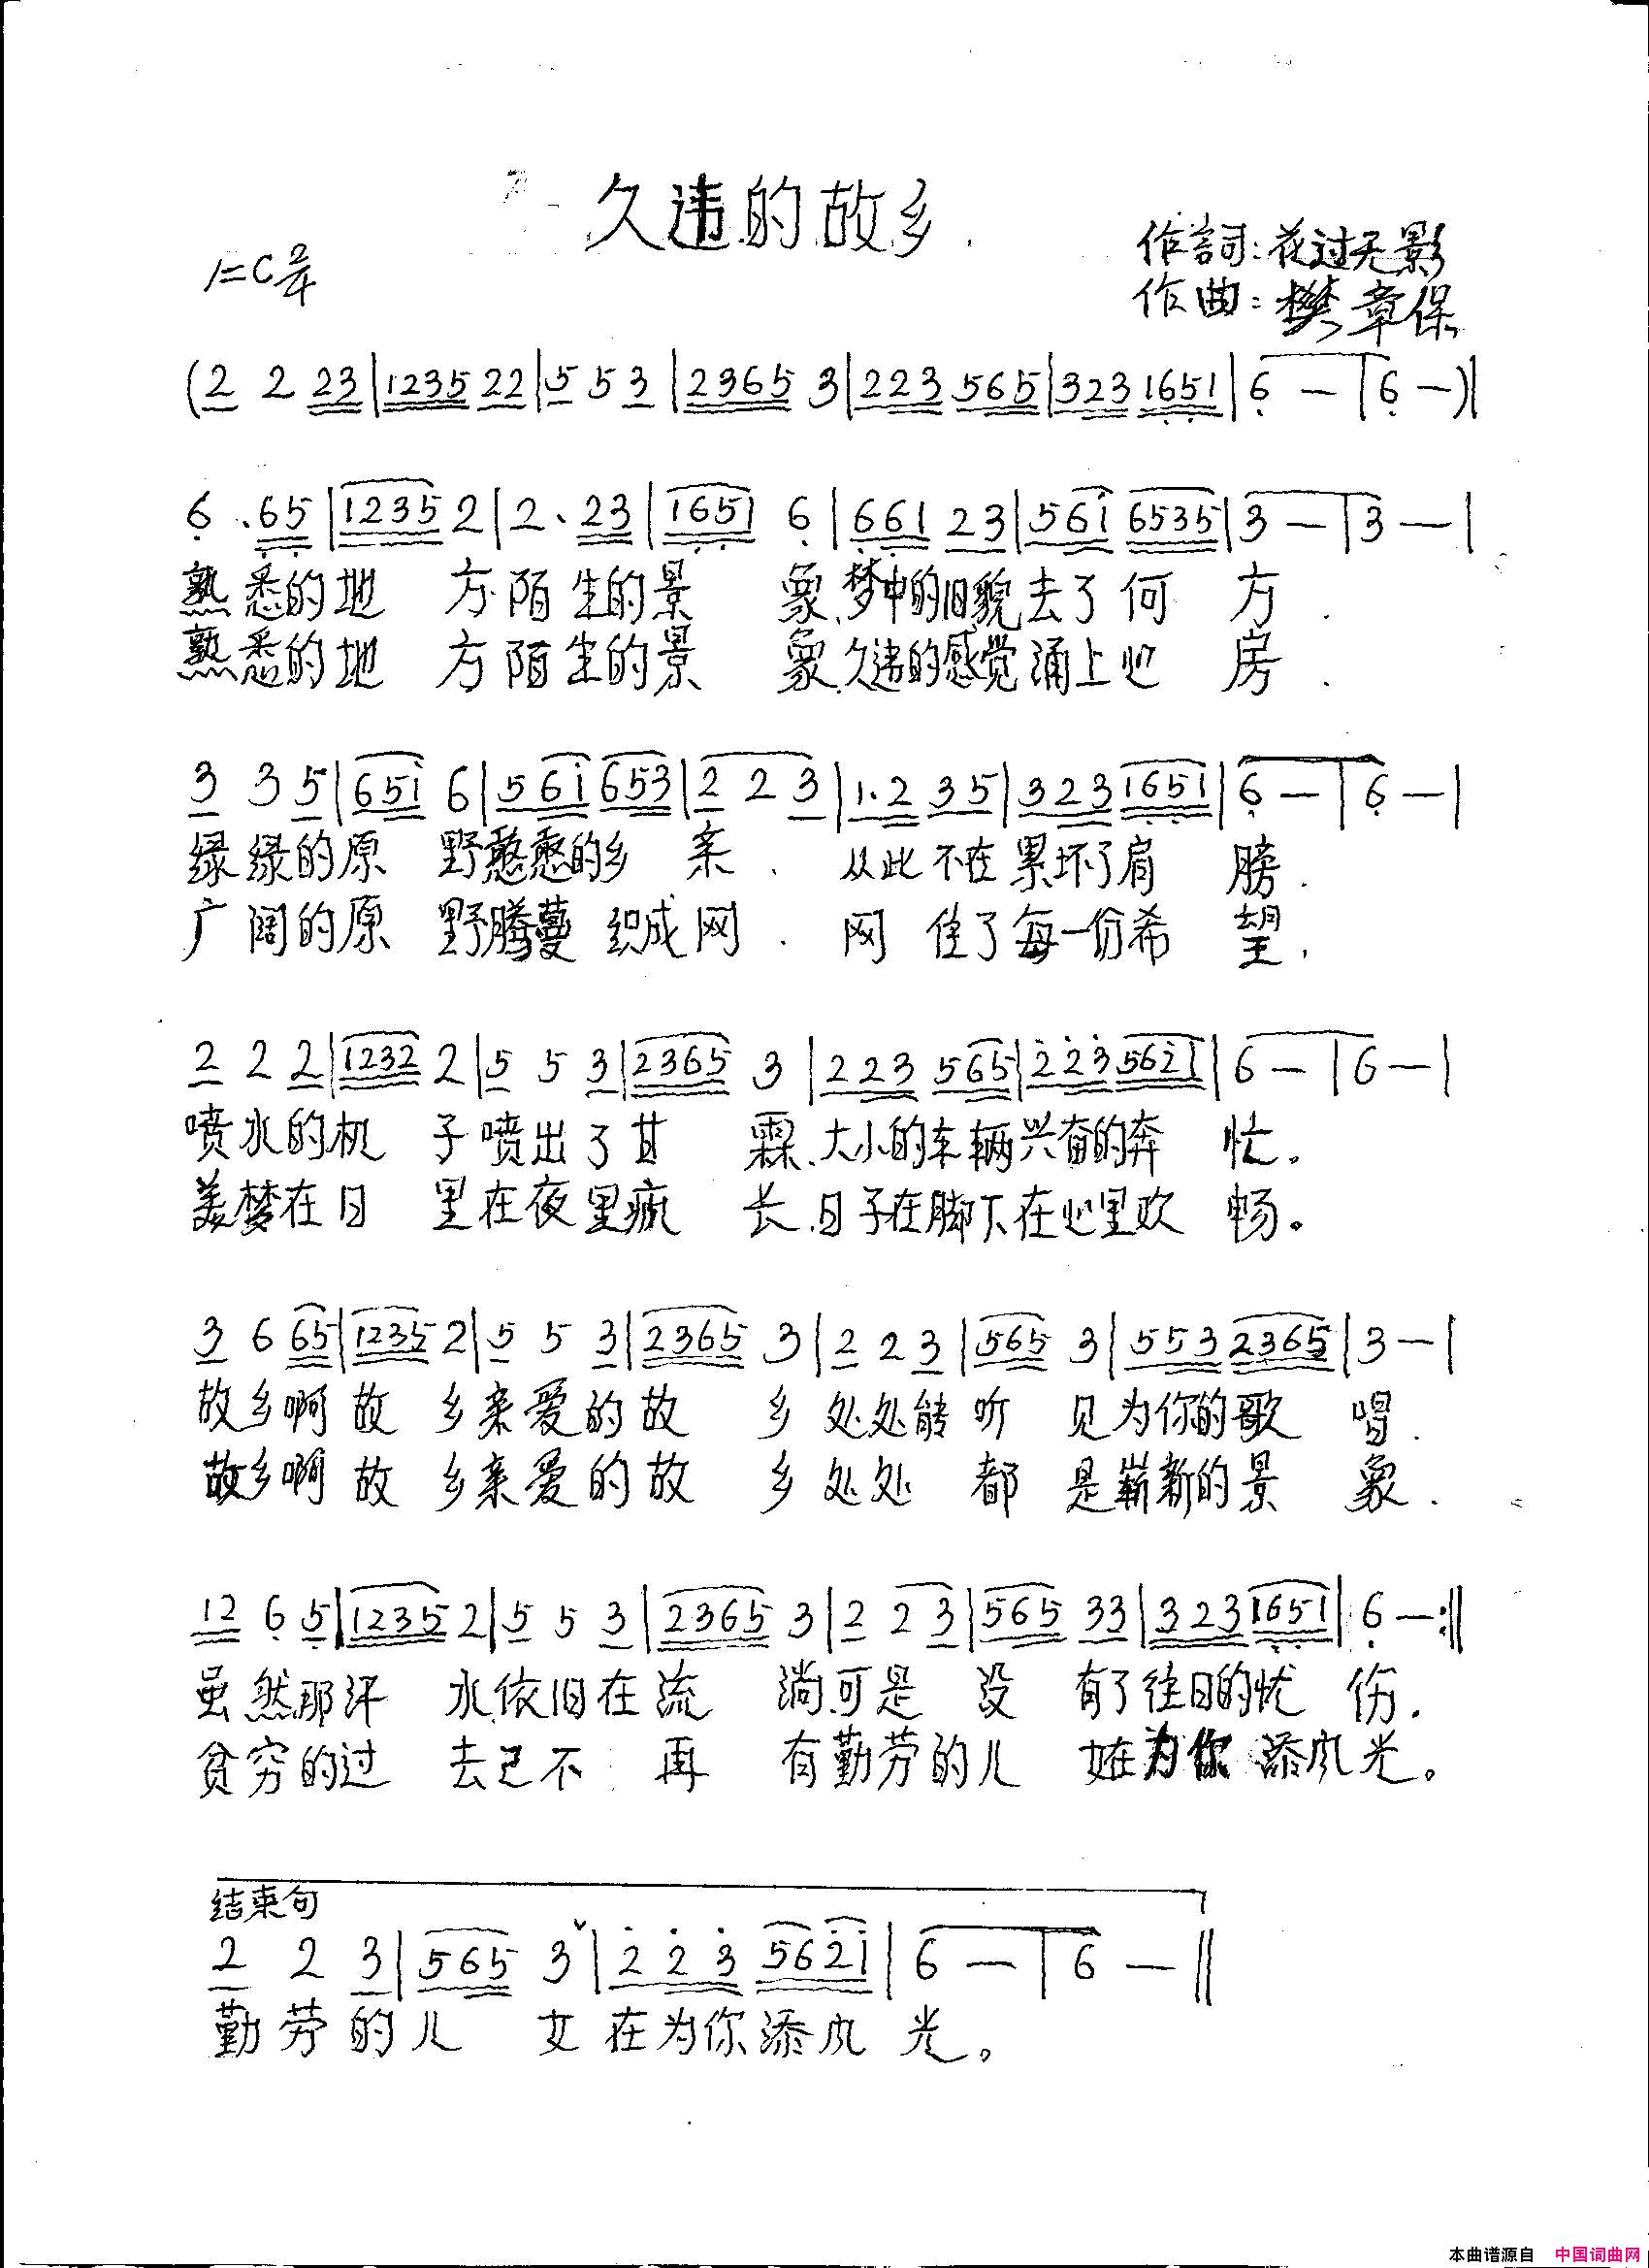 久违的故乡
1=C 2/4
作詞:花过无影
作曲:樊章保
(2 2 23|1235 22|5 5 3|2365 3|223 565|323 1651|6 — |6 —)|
6 .65|1235 2|2. 23|1651 6|661 23|561 6535|3 — |3 — |
熟悉的地 方.陌生的景 象.梦中的旧貌去了何 方.
熟悉的地 方陌生的景 象.久违的感觉涌上心 房.
3 3 5|651 6|561 653|2 2 3|1.2 35|323 1651|6 — |6 — |
绿绿的原 野憨憨的乡 亲. 从此不在累坏了肩 膀.
广阔的原 野腾蔓织成网. 网住了每一份希 望.
2 2 2|1232 2|5 5 3|2365 3|223 565|223 5621|6 — |6 — |
喷水的机 子喷出了甘 霖.大小的车辆兴奋的奔 忙。
美梦在日 里在夜里疯 长.日子在脚下在心里欢 畅。
3 6 65|1235 2|5 5 3|2365 3|2 2 3|565 3|553 2365|3 — |
故乡啊故 乡亲爱的故 乡处处能听 见为你的歌 唱.
故乡啊故 乡亲爱的故 乡处处 都 是崭新的景 象.
12 6 5|1235 2|5 5 3|2365 3|2 2 3|565 33|323 1651|6 —:‖
虽然那汗 水依旧在流 淌.可是 没 有了往日的忧 伤.
贫穷的过 去已不 再 有勤劳的儿 女在为你添风光。
结束句
2 2 3|565 3ˇ|223 5621|6 — |6 — ‖
勤劳的儿 女在为你添风 光。
本曲谱源自 中国词曲网